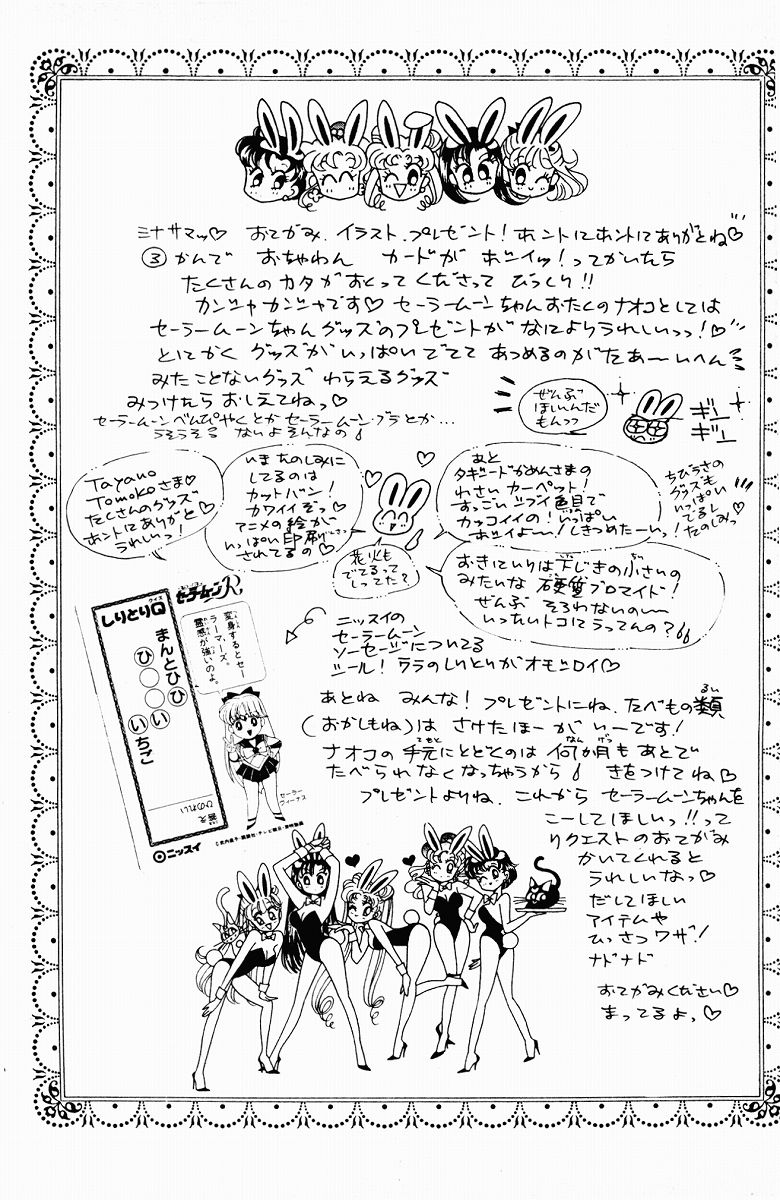 ミナサマッ♡ おてがみ、イラスト、プレゼント!ホントにホントにありがとね♡
③かんで おちゃわん カードが ホシイッ!ってかいたら
たくさんのカタがおくってくださって びっくり!!
カンシャカンシャです♡ セーラームーンちゃんおたくのナオコとしては
セーラームーンちゃんグッズのプレゼントがなによりうれしいっっ!♡
とにかく グッズが いっぱいでてて あつめるのがたあーいへん
みたことないグッズ わらえるグッズ
みつけたら おしえてねっ♡
セーラームーンべんぴやくとか セーラームーンブラとか…
うそうそ ないよそんなの
ぜんぶ
ほしいんだ
もんっっ
ギュー
ギュー
Tayano
Tomokoさま♡
たくさんのグッズ
ホントにありがと♡
うれしいっ!
いまたのしみに
してるのは
カットバン!
カワイイぞっ♡
アニメの絵が
いっぱい印刷
されてるの♡
花火も
でてるって
しってた?
あと
タキシードかめんさまの
わさい カーペット!
すっごいシブイ色目で
カッコイイの!いっぱい
ホシイよー!しきつめたーいっ!
ちびうさの
グッズも
いっぱい
でるし
たのしみっ♡
おきにいりは下じきの小さいの
みたいな 硬質ブロマイド!
ぜんぶ そろわないの〜
いったいトコにうってんの?
セーラームーンR
しりとりQ
クイズ
まんとひひ
ひ○○い
いちご
答え
ひのれい
変身するとセー
ラーマーズ。
霊感が強いのよ。
セーラー
ヴィーナス
ニッスイ
©武内直子・講談社・テレビ朝日・東映動画
ニッスイの
セーラームーン
ソーセージについてる
シール!ウラのしりとりがオモシロイ♡
あとね みんな! プレゼントにね、たべもの類
(おかしもね)は さけたほーが いーです!
ナオコの手元にとどくのは 何か月もあとで
たべられなくなっちゃうから きをつけてね♡
プレゼントよりね、これから セーラームーンちゃんを
こーしてほしいっ!!って
リクエストのおてがみ
かいてくれると
うれしいなっ♡
だしてほしい
アイテムや
ひっさつワザ!
ナドナド
おてがみください♡
まってるよっ♡